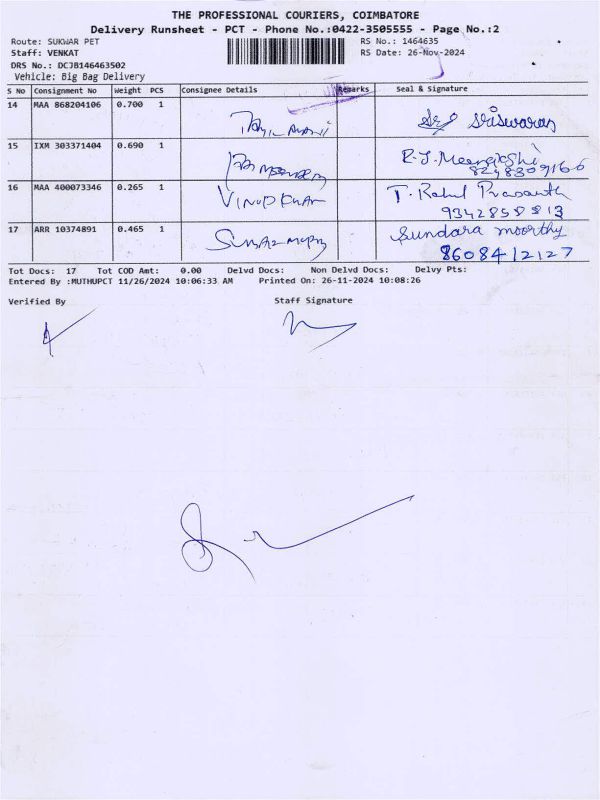 THE PROFESSIONAL COURIERS, COIMBATORE
Delivery Runsheet - PCT - Phone No.:0422-3505555 - Page No.:2
Route: SUKWAR PET RS No.: 1464635
Staff: VENKAT RS Date: 26-Nov-2024
DRS No.: DCJB146463502
Vehicle: Big Bag Delivery
S No Consignment No Weight PCS Consignee Details Remarks Seal & Signature
14 MAA 868204106 0.700 1 Sriswaran
15 IXM 303371404 0.690 1 R.J. Meenakshi
8248309166
16 MAA 400073346 0.265 1 T. Rahul Prasanth
9342858813
17 ARR 10374891 0.465 1 Sundara moorthy
8608412127
Tot Docs: 17 Tot COD Amt: 0.00 Delvd Docs: Non Delvd Docs: Delvy Pts:
Entered By :MUTHUPCT 11/26/2024 10:06:33 AM Printed On: 26-11-2024 10:08:26
Verified By Staff Signature